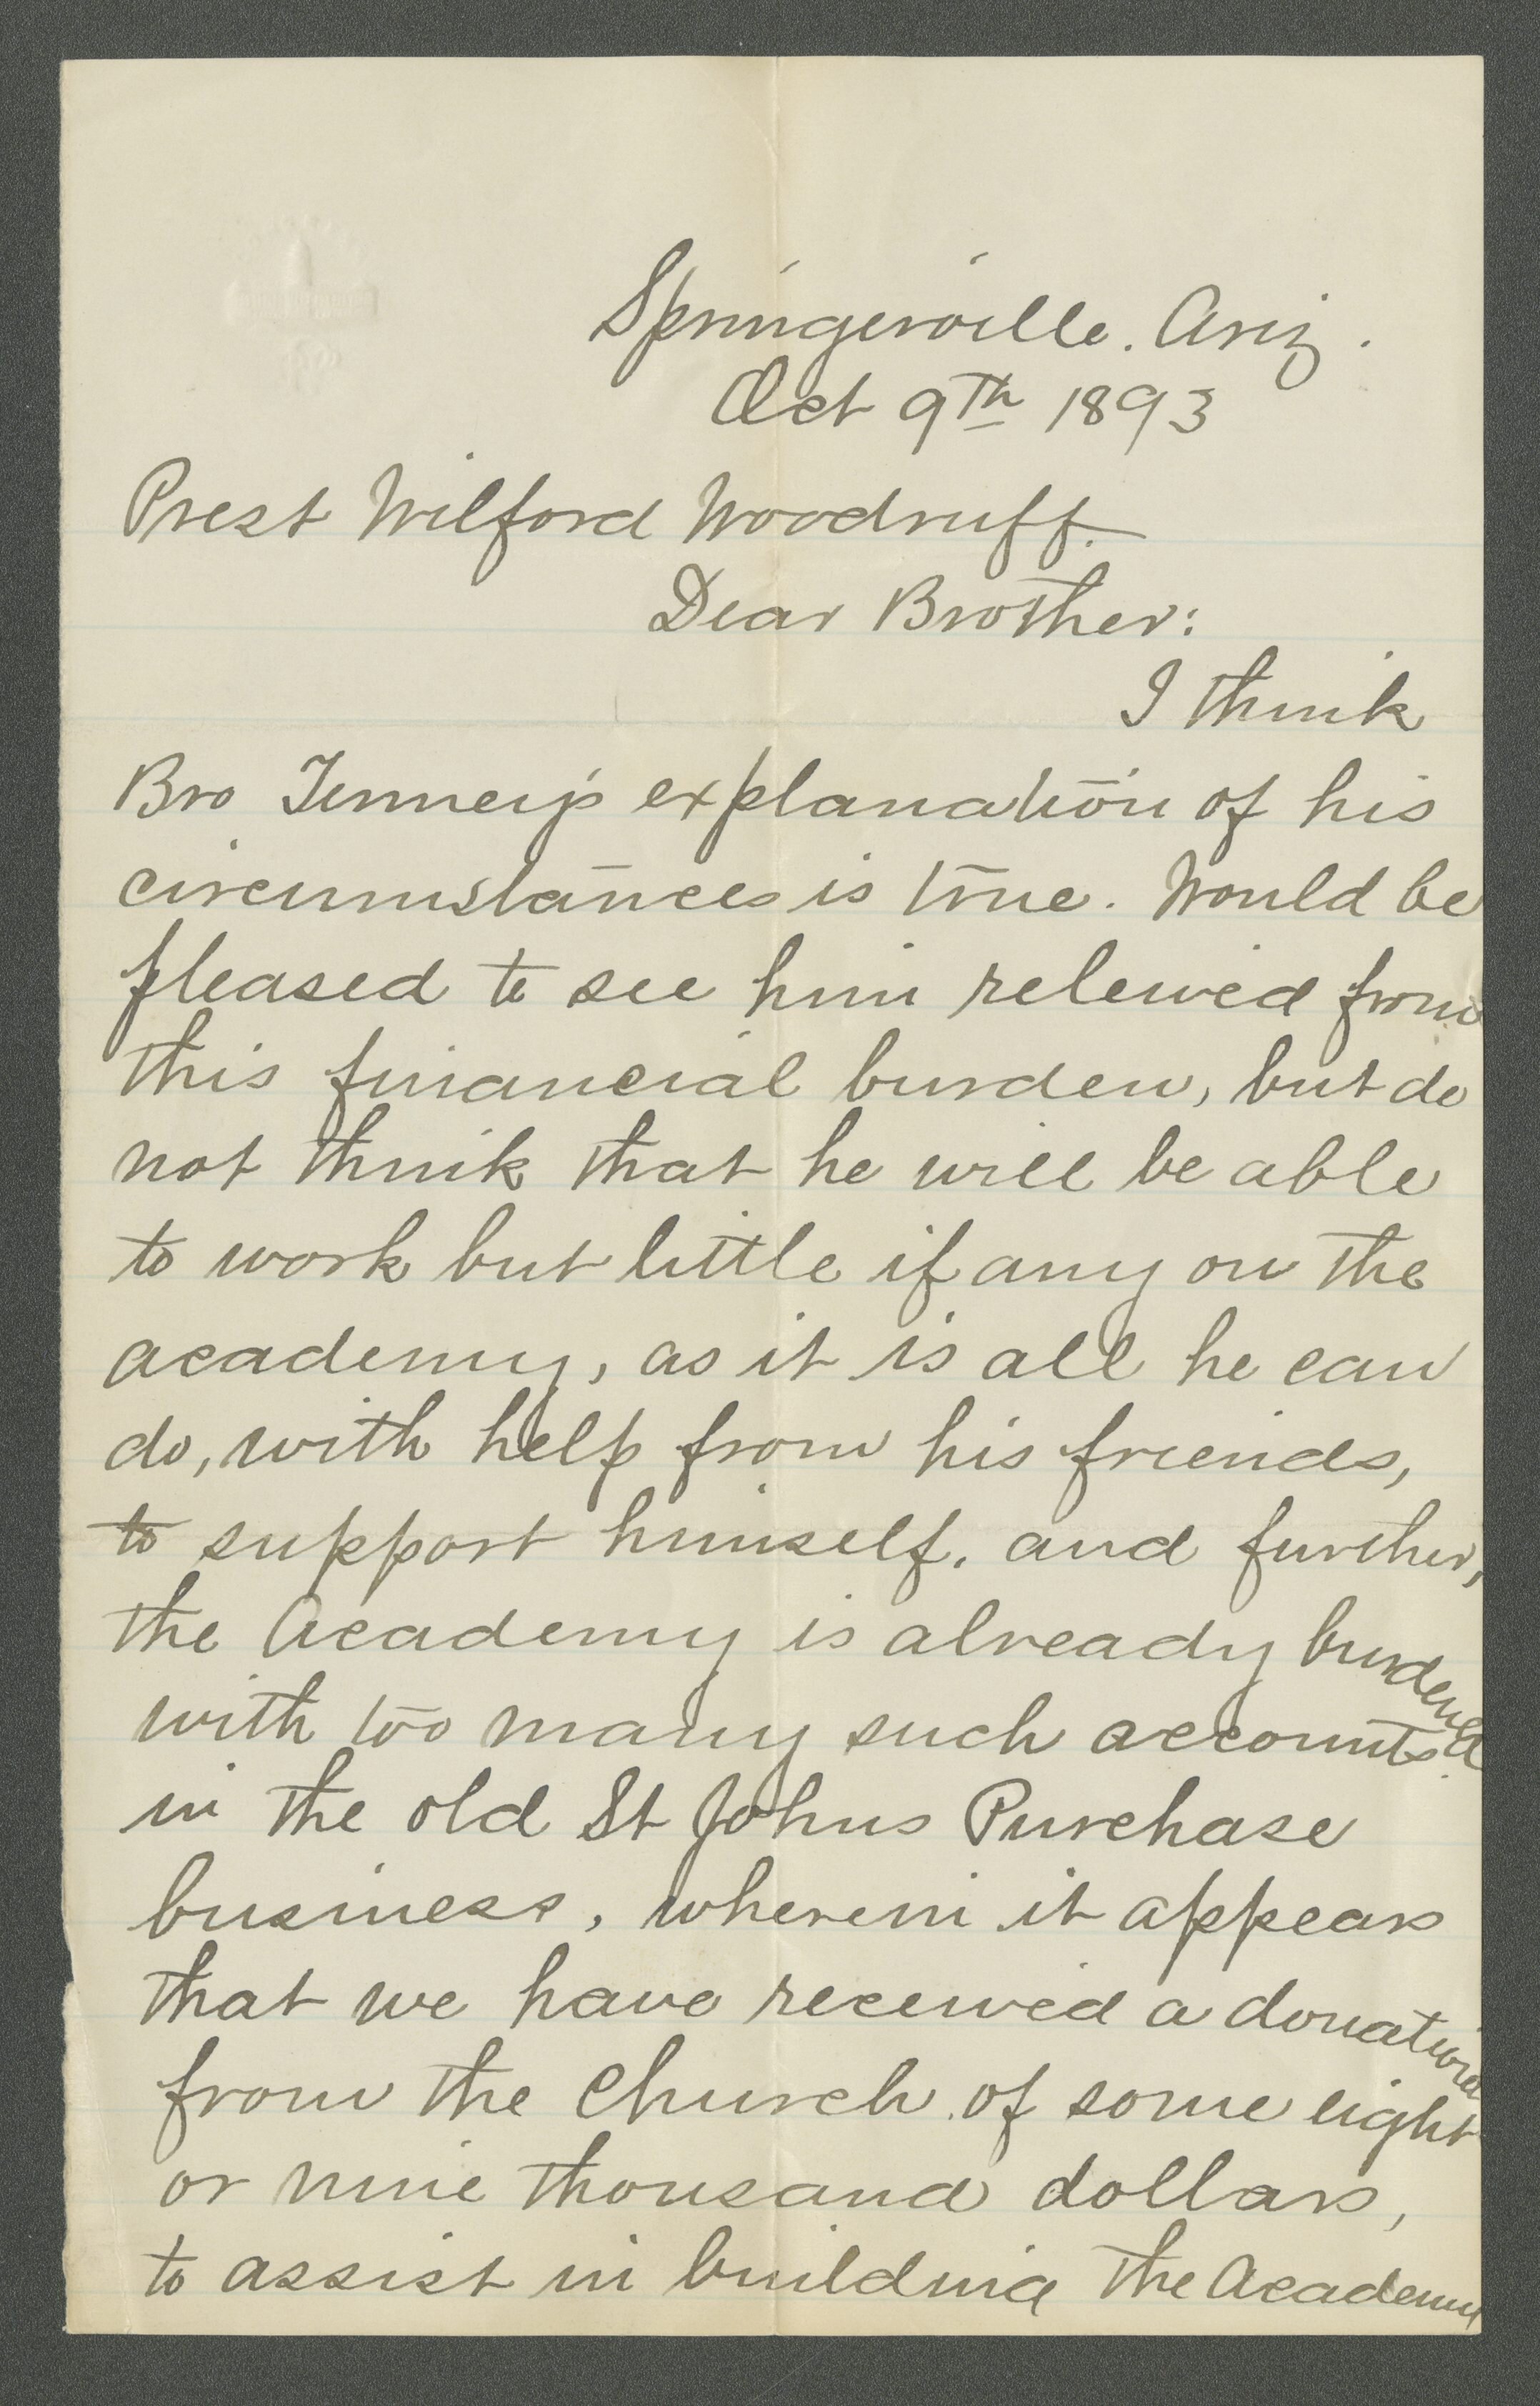 Springerville. Ariz.
Oct 9th 1893
Prest Wilford Woodruff.
Dear Brother:
I think
Bro Tenney's explanation of his
circumstances is true. Would be
pleased to see him releived from
this financial burden, but do
not think that he will be able
to work but little if any on the
academy, as it is all he can
do, with help from his friends,
to support himself. and further,
the Academy is already burdened
with too many such accounts
in the old St Johns Purchase
business, wherein it appears
that we have received a donation
from the Church of some eight
or nine thousand dollars,
to assist in building the Academy